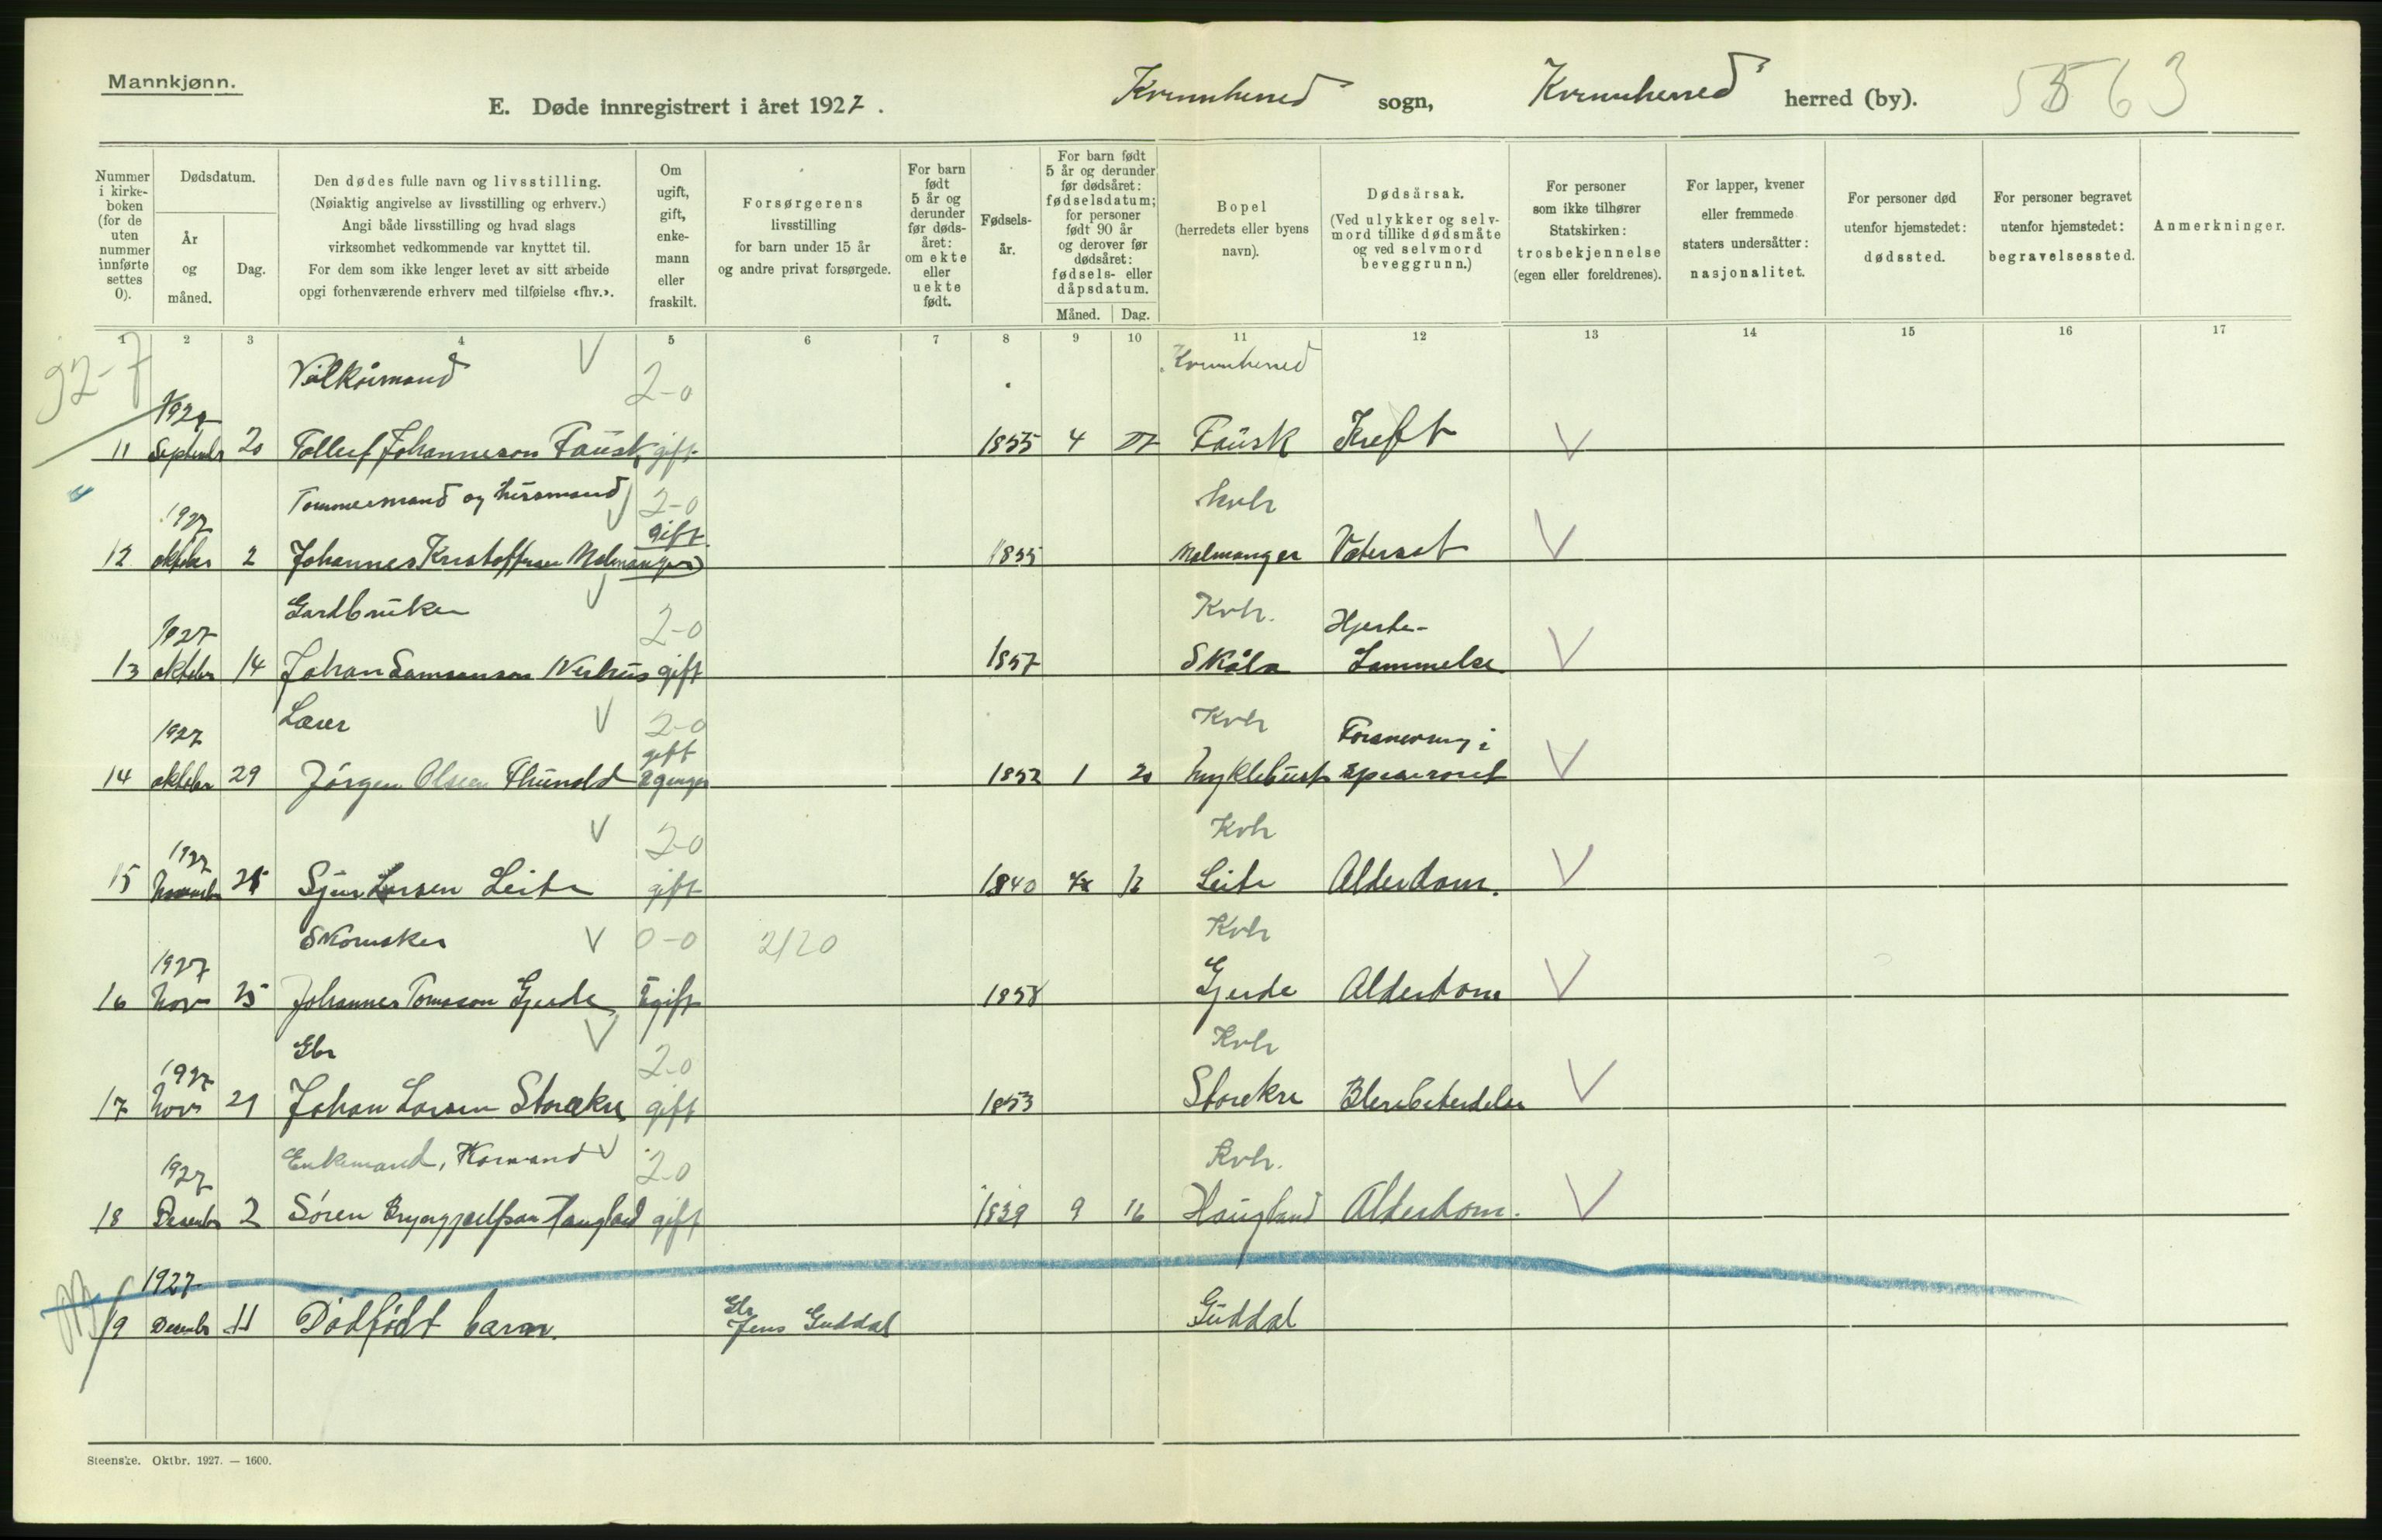 Mannkjønn.
E. Døde innregistrert i året 1927.
Kvinnherred sogn, Kvinnherred herred (by). 5563
Nummer i kirkeboken (for de uten nummer innførte settes 0).
Dødsdatum.
År og måned.
Dag.
Den dødes fulle navn og livsstilling.
(Nøiaktig angivelse av livsstilling og erhverv.)
Angi både livsstilling og hvad slags
virksomhet vedkommende var knyttet til.
For dem som ikke lenger levet av sitt arbeide
opgi forhenværende erhverv med tilføielse «fhv.».
Om ugift, gift, enkemann eller fraskilt.
Forsørgerens
livsstilling
for barn under 15 år
og andre privat forsørgede.
For barn født 5 år og derunder før dødsåret: om ekte eller uekte født.
Fødselsår.
For barn født 5 år og derunder før dødsåret: fødselsdatum; for personer født 90 år og derover før dødsåret: fødsels- eller dåpsdatum.
Måned.
Dag.
Bopel
(herredets eller byens
navn).
Dødsårsak.
(Ved ulykker og selvmord tillike dødsmåte og ved selvmord beveggrunn.)
For personer
som ikke tilhører
Statskirken:
trosbekjennelse
(egen eller foreldrenes).
For lapper, kvener
eller fremmede
staters undersåtter:
nasjonalitet.
For personer død
utenfor hjemstedet:
dødssted.
For personer begravet
utenfor hjemstedet:
begravelsessted.
Anmerkninger.
1 2 3 4 5 6 7 8 9 10 11 12 13 14 15 16 17
92-7
Vilkårmand V 2-0 Kvinnherred
1927
11 September 20 Tollef Johanneson Fausk gift 1855 4 27 Fausk Kreft V
Tømmermand og husmand V 2-0 Kvh
1927 gift
12 oktober 2 Johannes Kristoffersen Malmanger 1855 Malmanger Vatersot V
Gardbruker V 2-0 Kvh. Hjerte-
1927
13 oktober 14 Johan Samsonson Neshus gift 1857 Skåla Lammelse V
Lærer V 2-0 Kvh Forsnevring i
1927 gift
14 oktober 29 Jørgen Olsen Thunold 2 ganger 1852 1 20 Myklebust spiserøret V
V 2-0 Kvh
1927
15 November 25 Sjur Larsen Leite gift 1840 12 Leite Alderdom. V
Skomaker V 0-0 2/20 Kvh
1927
16 Nov 25 Johannes Tomason Gjerde Ugift 1858 Gjerde Alderdom V
Gbr V 2-0 Kvh
1927
17 Nov 29 Johan Larsen Storekre gift 1853 Storekre Blerebetendelse V
Enkemand, Kårmand V 2-0 Kvh.
1927
18 Desember 2 Søren Haugland gift 1839 9 16 Haugland Alderdom. V
1927 Gbr
19 Desember 11 Dødfødt barn. Jens Guddal Guddal
Steenske. Oktbr. 1927. — 1600.